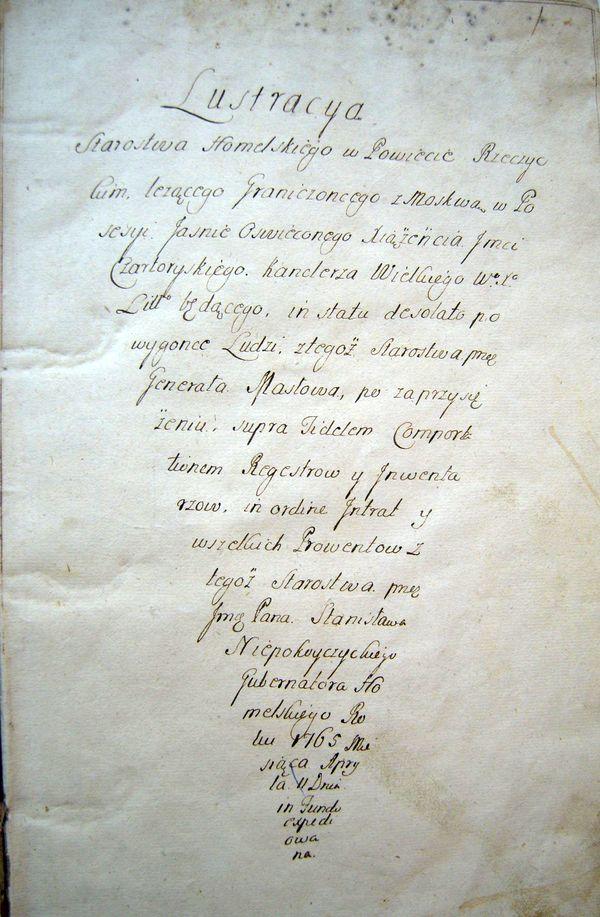 Lustracya
Starostwa Homelskiego w Powiecie Rzeczyc
kim, leżącego Graniczoneego z Moskwą, w Po
sesyi Jaśnie Oswieconego Xiążęńcia Jmci
Czartoryskiego. Kanclerza Wielkiego Wo Xo
Litto będącego, in statu desolato po
wygonce Ludzi, z tegoż Starostwa przez
Generała Masłowa, po zaprzysię
żeniu, supra Fidelem Comporta
tionem Regestrow y Jnwenta
rzow, in ordine Jntrat y
wszelkich Prowentow z
tegoż Starostwa. przez
Jmci Pana Stanisława
Niepokoyczyckiego
Gubernatora Ho
melskiego Ro
ku 1765 Mie
siąca Apry
la 11 Dnia
in Fundo
expedi
owa
na.